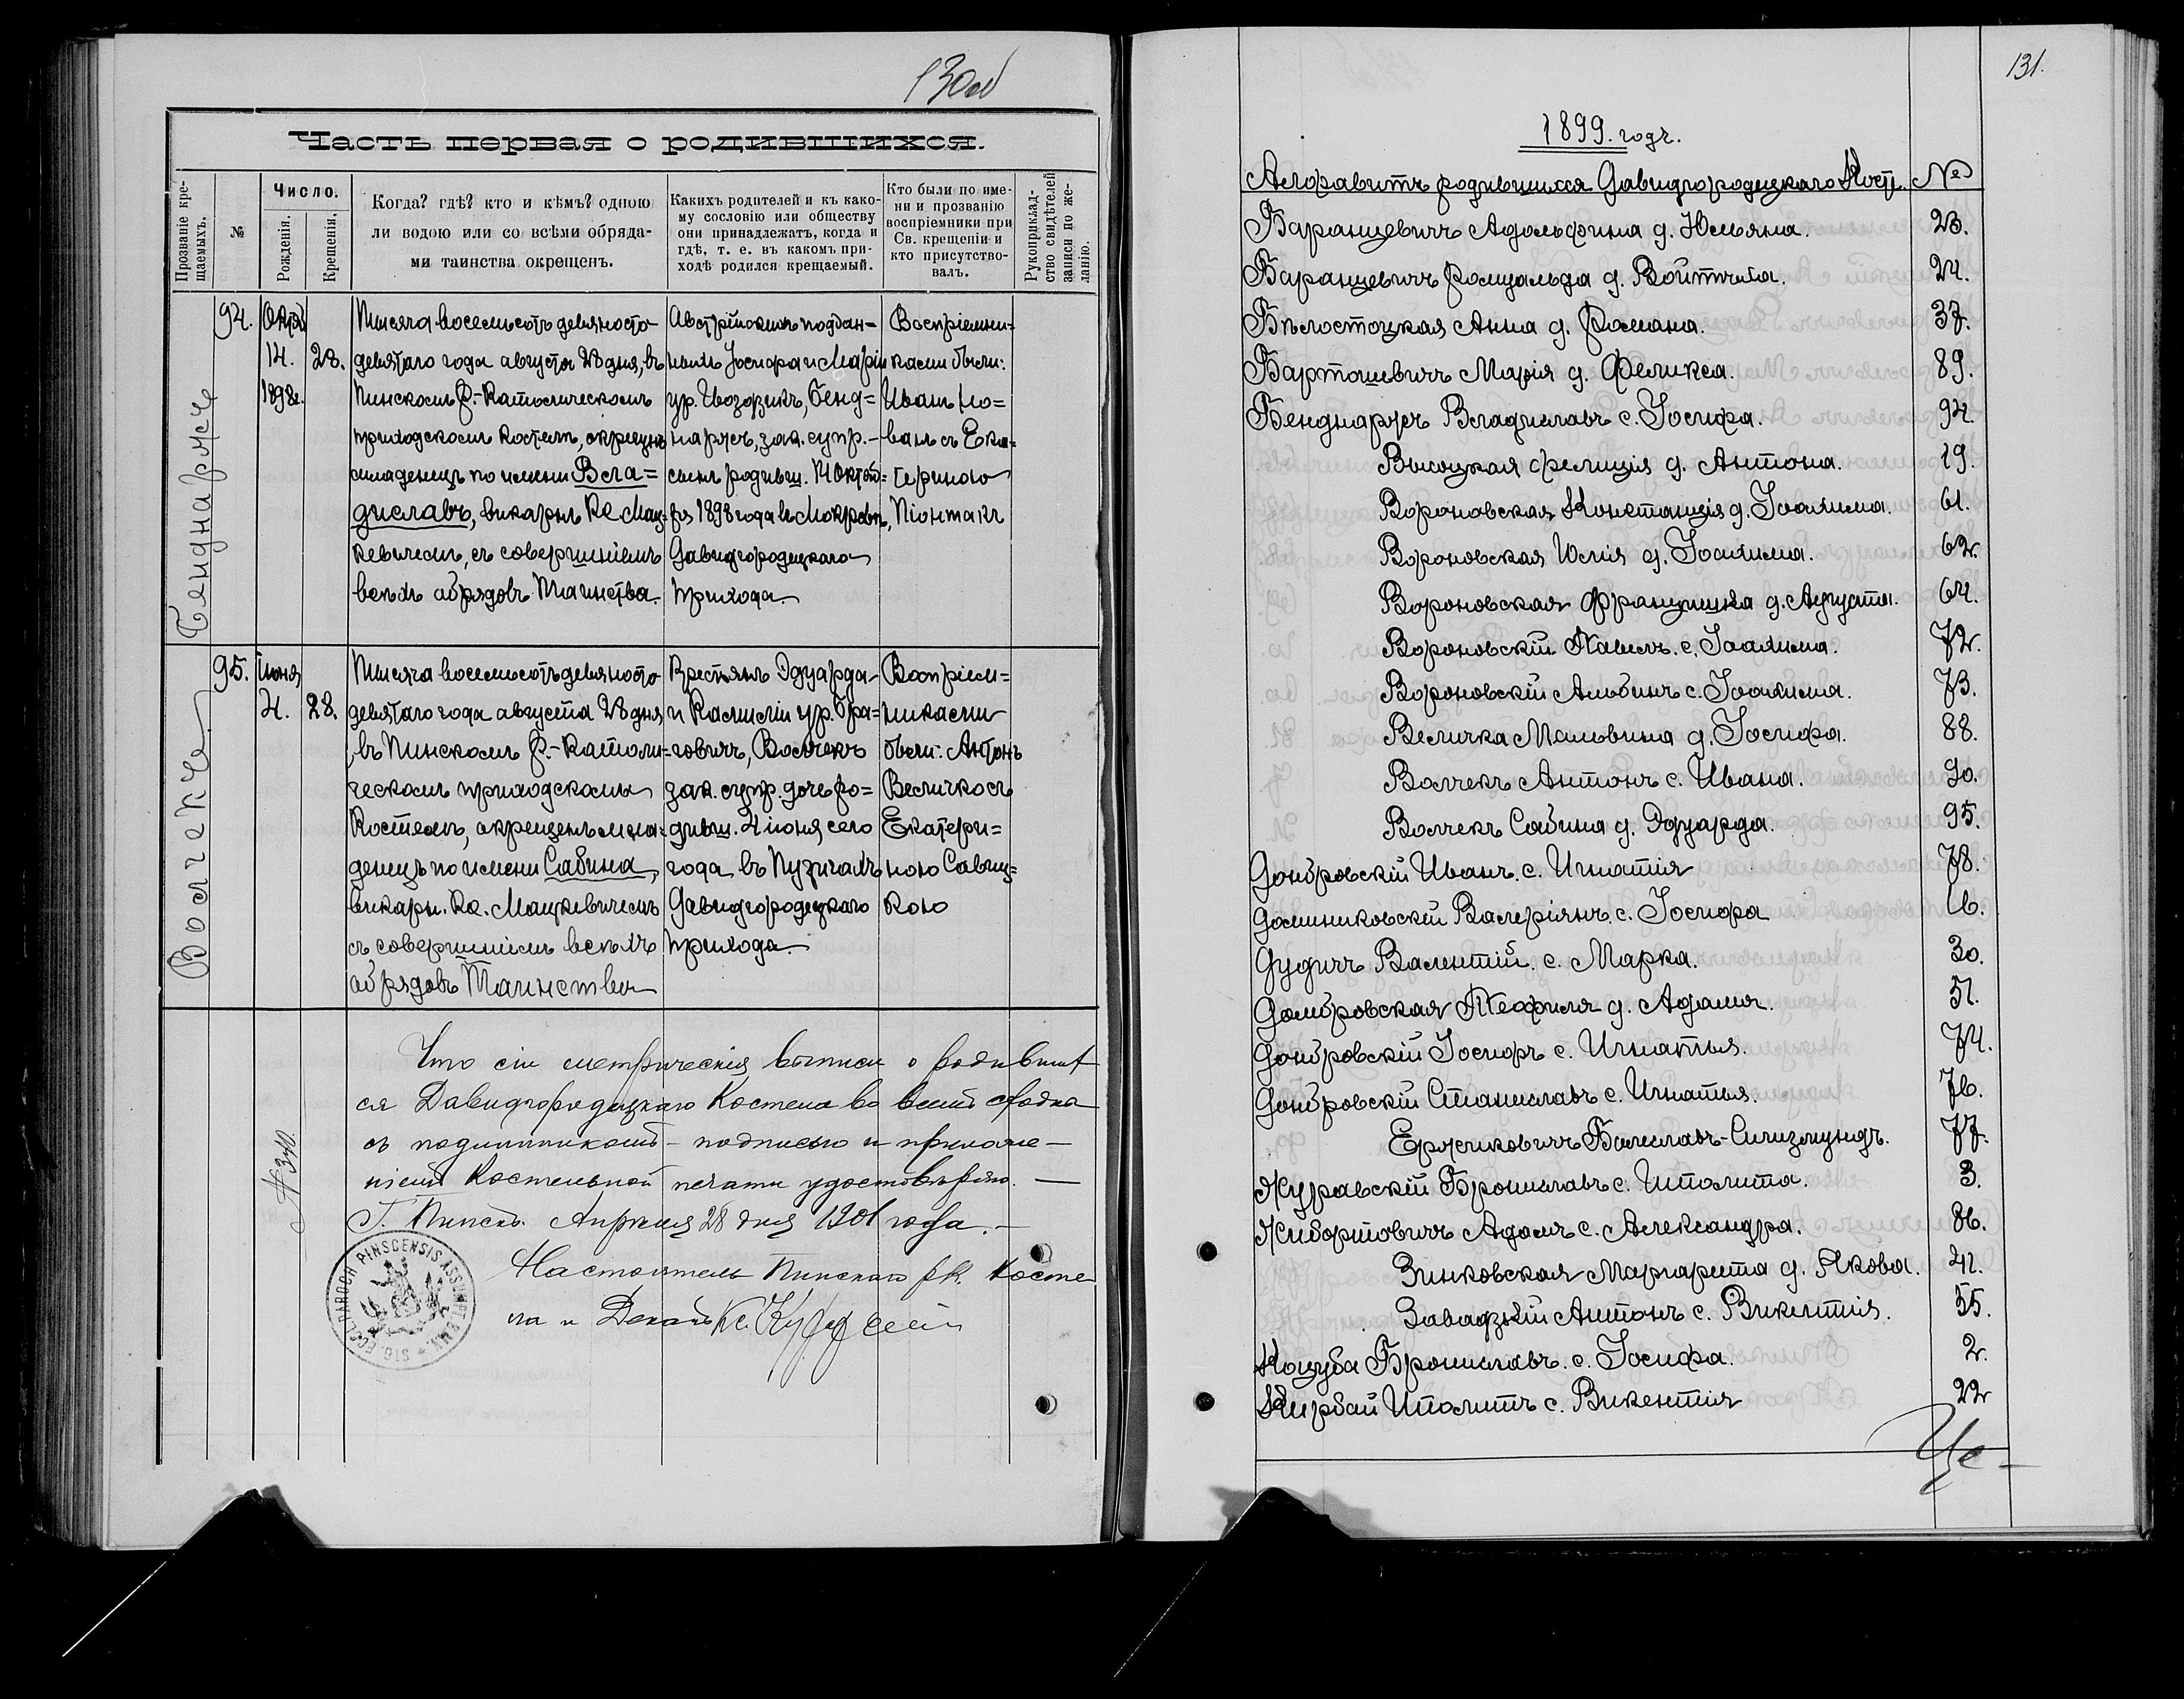 130об
Часть первая о родившихся.
Прозваніе кре-
щаемыхъ.
№
Число.
Рожденія.
Крещенія.
Когда? гдѣ? кто и кѣмъ? одною
ли водою или со всѣми обряда-
ми таинства окрещенъ.
Какихъ родителей и къ како-
му сословію или обществу
они принадлежатъ, когда и
гдѣ, т. е. въ какомъ при-
ходѣ родился крещаемый.
Кто были по име-
ни и прозванію
воспріемники при
Св. крещеніи и
кто присутство-
валъ.
Рукоприклад-
ство свидѣтелей
записи по же-
ланію.
Бенднаржъ
94.
Октяб
14.
1898г.
28.
Тысяча восемьсотъ девяносто
девятаго года августа 28 дня, въ
Пинскомъ Р.-Католическомъ
приходскомъ костелѣ, окрещенъ
младенецъ по имени Вла=
диславъ, викарнъ Кс Мац-
кевичемъ, съ совершеніемъ
всѣхъ обрядовъ Таинства.
Австрійскихъ поддан=
ныхъ Іосифа и Маріи
ур. Гвоздзикъ, Бенд=
наржъ, зак. супр.-
сынъ родивш. 14 Октяб=
ря 1898 года въ Мокровѣ,
Давидгородецкаго
прихода.
Воспріемни=
ками были:
Иванъ Но=
вакъ съ Ека=
териною
Піонтакъ
Волчекъ
95.
Іюня
4.
28.
Тысяча восемьсотъ девяносто
девятаго года августа 28 дня
въ Пинскомъ Р.-Католи=
ческомъ приходскомъ
Костелѣ, окрещенъ мла=
денецъ по имени Сабина,
викарн. Кс. Мацкевичемъ
съ совершеніемъ всѣхъ
обрядовъ Таинства
Крестьянъ Эдуарда
и Камиліи ур. Бра=
говичъ, Волчекъ
зак. супр. дочь ро=
дивш. 4 іюня сего
года въ Пузичахъ
Давидгородецкаго
прихода.
Воспріем=
никами
были: Антонъ
Величко съ
Екатери=
ною Савиц=
кою
№ 340.
Что сіи метрическія выписи о родивших
ся Давидгородецкаго Костела во всемъ сходна
съ подлинникомъ - подписью и приложе-
ніемъ Костельной печати удостовѣряю.
Г. Пинскъ. Апрѣля 28 дня 1901 года.
Настоятель Пинскаго р.к. Косте
ла и Деканъ Кс.
SIG. ECCL. PAROCH PINSCENSIS ASSUMPT. B.M.V.
131.
1899. годъ.
Алфавитъ родившихся Давидгородецкаго Кост. №
Баранцевичъ Адольфина д. Юльяна. 23.
Баранцевичъ Ромуальда д. Войтѣха. 24.
Бѣлостоцкая Анна д. Романа. 37.
Бартошевичъ Марія д. Феликса. 89.
Бенднаржъ Владиславъ с. Іосифа. 94.
Высоцкая Фелиція д. Антона. 19.
Вороновская Констанція д. Іоахима. 61.
Вороновская Юлія д. Іоахима. 62.
Вороновская Францишка д. Августа. 64.
Вороновскій Павелъ. с. Іоахима. 72.
Вороновскій Альбинъ с. Іоахима. 73.
Величка Мальвина д. Іосифа. 88.
Волчекъ Антонъ с. Ивана. 90.
Волчекъ Сабина д. Эдуарда. 95.
Домбровскій Иванъ. с. Игнатія 78.
Доминиковскій Валеріянъ. с. Іосифа 16.
Дудичъ Валентій. с. Марка. 30.
Домбровская Теофиля д. Адама. 51.
Домбровскій Іосифъ с. Игнатья. 74.
Домбровскій Станиславъ с. Игнатья. 76.
Ержиковичъ Балиславъ-Сигизмундъ. 77.
Журавскій Брониславъ с. Иполита. 3.
Жибортовичъ Адамъ с. Александра. 86.
Зинковская Маргарита д. Якова. 42.
Завадзкій Антонъ с. Викентія. 55.
Коцуба Брониславъ. с. Іосифа. 2.
Кирбай Иполитъ с. Викентія 22